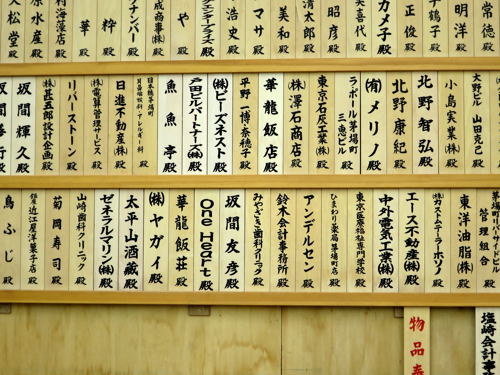 常徳 殿
明洋 殿
千鶴子 殿
正俊 殿
カメ子 殿
喜代 殿
昭彦 殿
清太郎 殿
美和 殿
マサ 殿
浩史 殿
殿
や 殿
成商事㈱ 殿
ナンバー 殿
粋 殿
華 殿
村海藻店 殿
水産 殿
松堂 殿
大野ビル 山田克己 殿
小島実業㈱ 殿
北野智弘 殿
北野康紀 殿
㈲メリノ 殿
ラ・ポール茅場町 三恵ビル 殿
東京石灰工業㈱ 殿
㈱澤石商店 殿
華龍飯店 殿
平野一博・奈穂子 殿
㈱ビーズネスト 殿
戸田ビルパートナーズ㈱ 殿
魚魚亭 殿
日本橋茅場町 耳鼻咽喉科・アレルギー科 殿
日進不動産㈱ 殿
㈱電算管理サービス 殿
リバーストーン 殿
㈱甚五郎設計企画 殿
坂間輝久 殿
坂間善行 殿
茅場町パークサイド 管理組合 殿
東洋油脂㈱ 殿
㈱カストムテーラーホソノ 殿
エース不動産㈱ 殿
中外電気工業㈱ 殿
東京医療福祉専門学校 殿
ひまわり薬局茅場町店 殿
アンデルセン 殿
鈴木会計事務所 殿
みやざき歯科クリニック 殿
坂間友彦 殿
One Heart 殿
華龍飯荘 殿
㈱ヤガイ 殿
太平山酒蔵 殿
ゼネラルマリン㈱ 殿
山崎歯科クリニック 殿
菊岡寿司 殿
銀座近江屋洋菓子店 殿
鳥ふじ 殿
塩崎会計事
物品